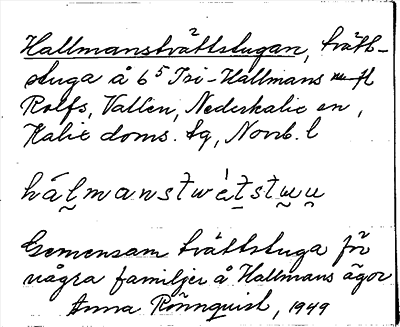 Hallmanstvättstugan, tvätt-
stuga å 6⁵ Tri-Hallmans fl
Rolfs, Vallen, Nederkalix sn,
Kalix doms. tg, Norrb. l
Gemensam tvättstuga för
några familjer å Hallmans ägor
Anna Rönnquist, 1949